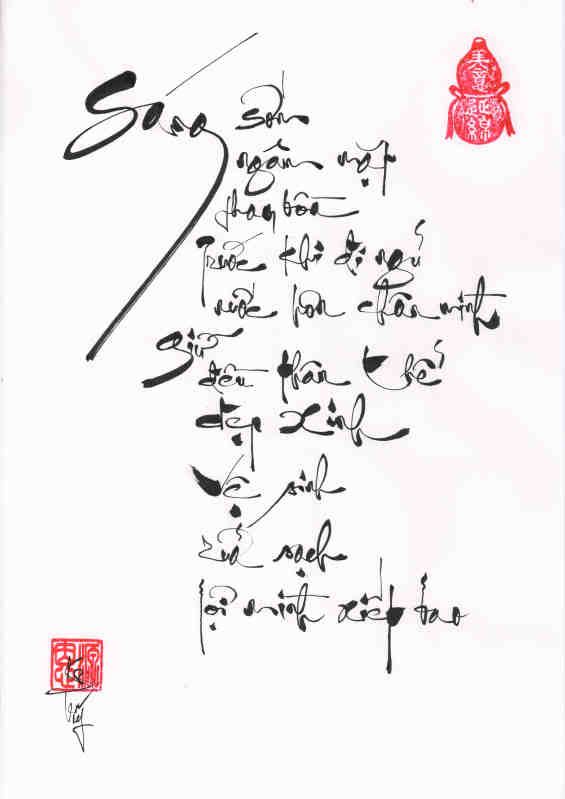 美意延綿
Sáng sớm
ngâm mặt
thay bồn
Trước khi đi ngủ
nước bồn chân mình
giữ đều thân thể
đẹp xinh
Vệ sinh
rửa sạch
lợi mình xiết bao